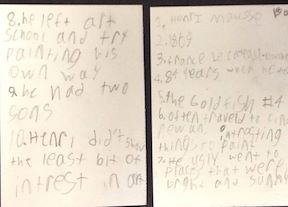 8.he left art
school and try
painting his
own way
9.he had two
sons
10.Henri did't show
the least bit of
intrest in art
1. Henri mausse
2.1869
3.france
4.84 years when he
5.the Goldfish #4
6.often traveld to find
new an intrasting
things to paint
7.He usly went to
places that were
bright and sunny